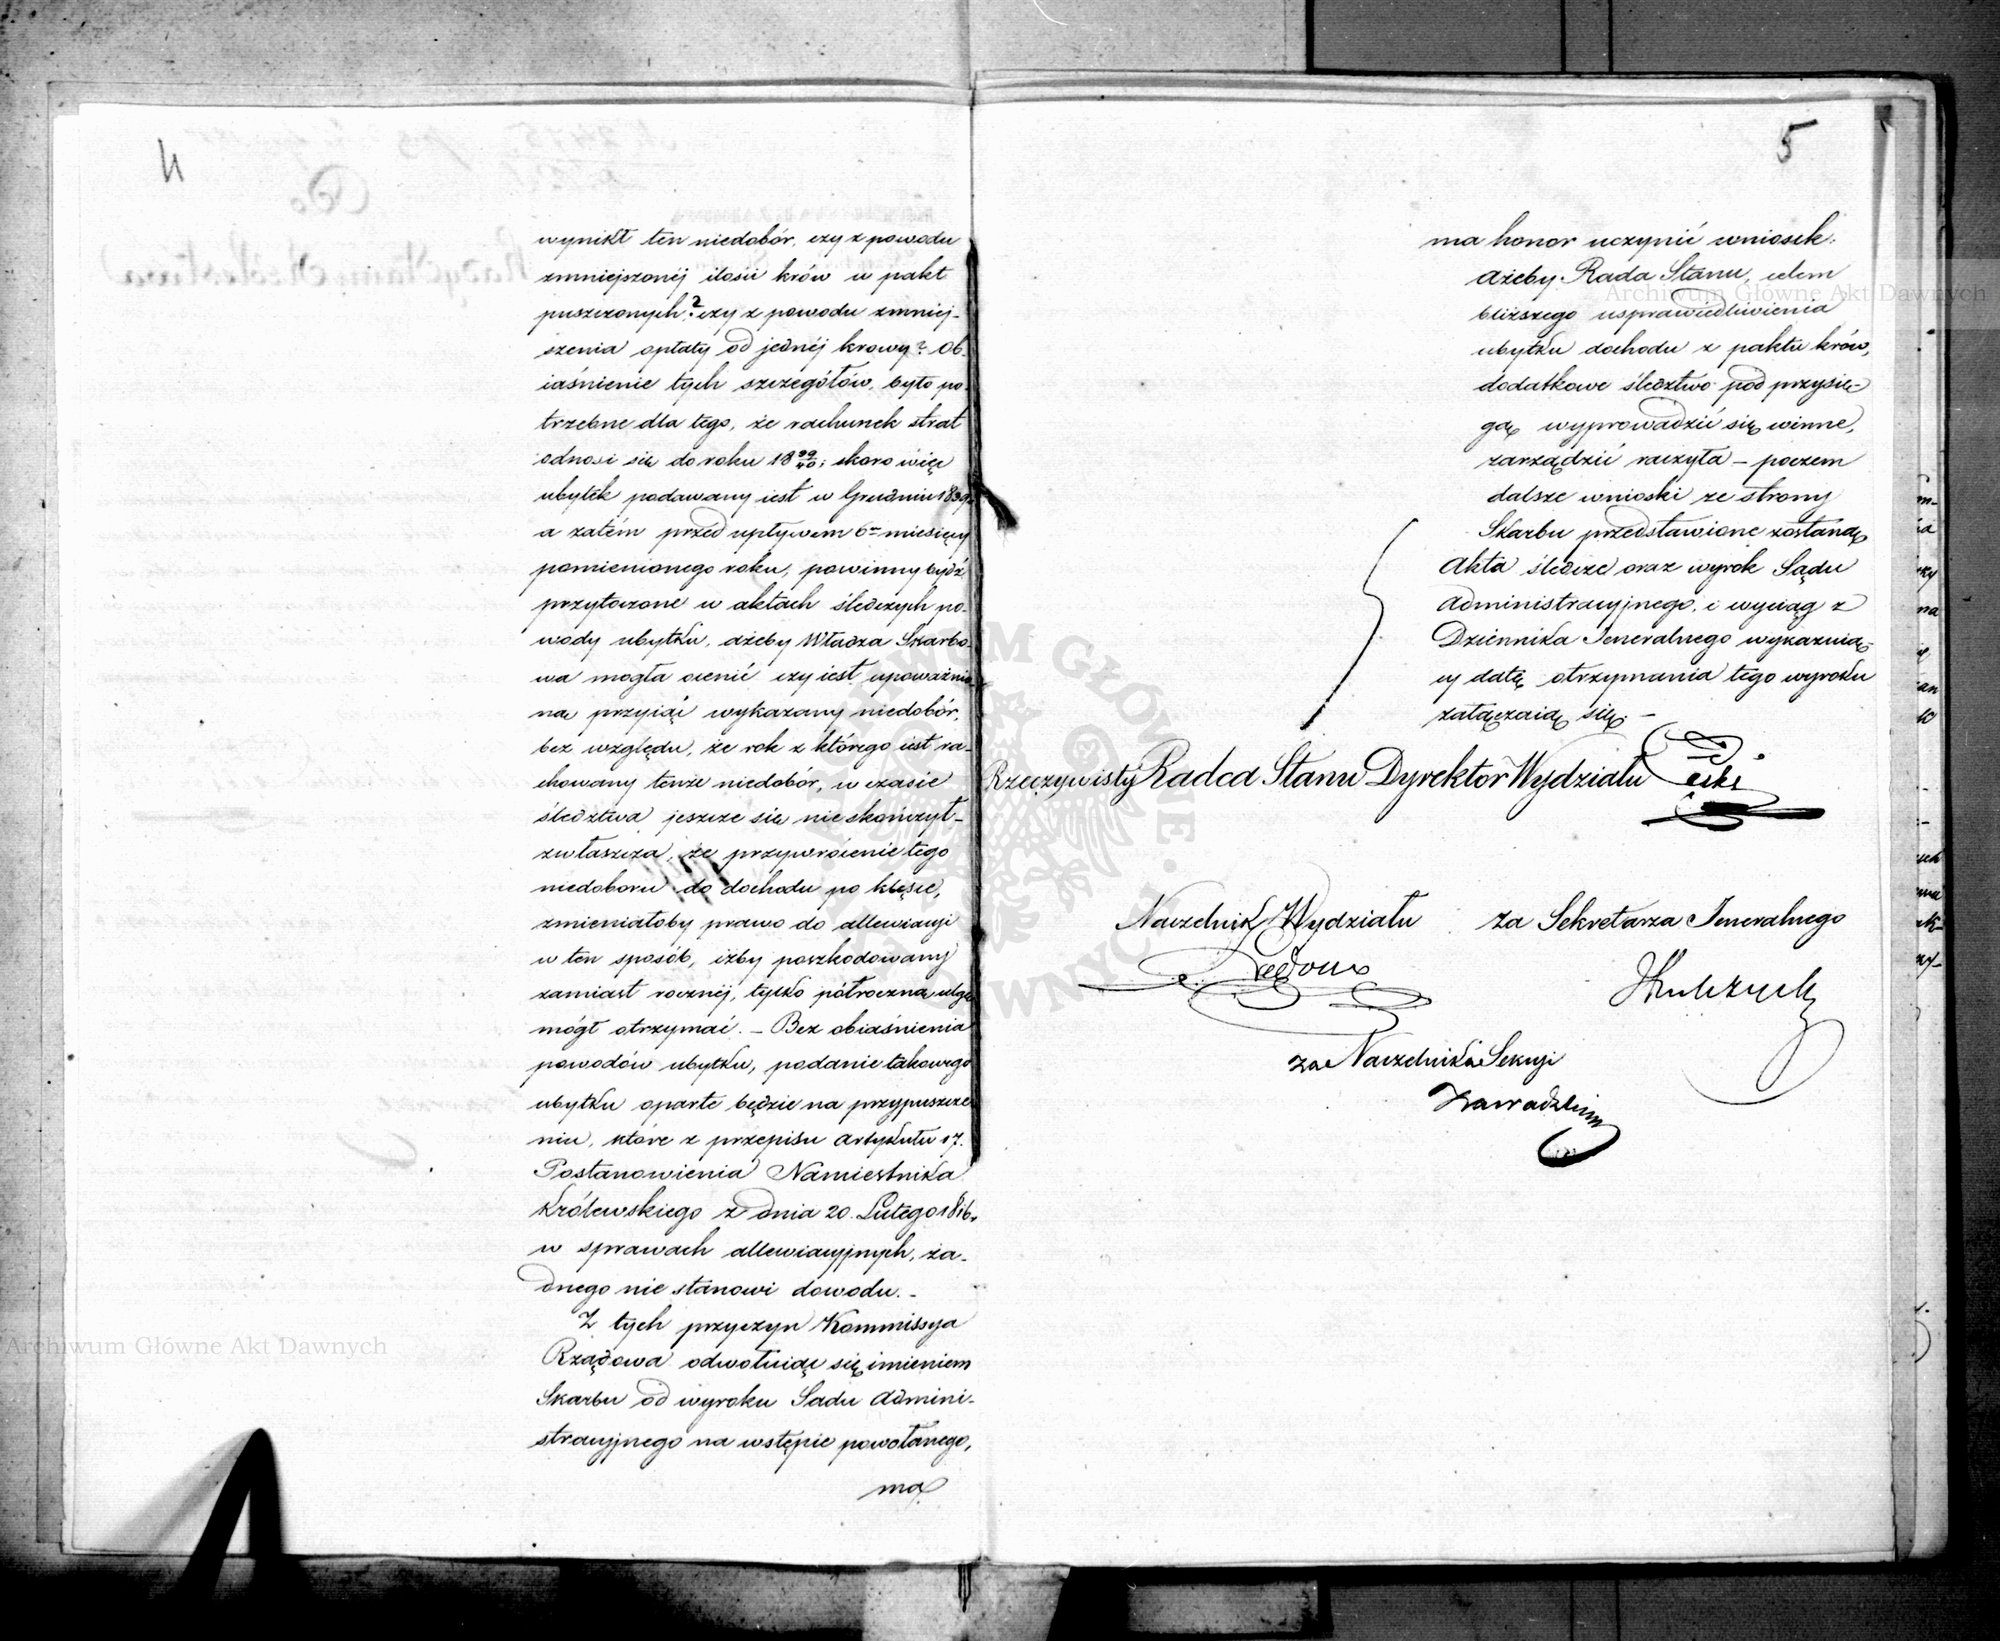 4
wynikł ten niedobór, czy z powodu
zmniejszonéj ilości krów w pakt
puszczonych? czy z powodu zmniej-
szenia opłaty od jednéj krowy? Ob-
iaśnienie tych szczegółów, było po-
trzebne dla tego, że rachunek strat
odnosi się do roku 18 39/40; skoro więc
ubytek podawany iest w Grudniu 1839
a zatém przed upływem 6ciu miesięcy
pomienionego roku, powinny bydź
przytoczone w aktach śledczych po-
wody ubytku, ażeby Władza Skarbo-
wa mogła ocenić czy iest upoważnio-
na przyiąć wykazany niedobór,
bez względu, że rok z którego iest ra-
chowany tenże niedobór, w czasie
śledztwa jeszcze się nie skończył-
zwłaszcza, że przywrócenie tego
niedoboru do dochodu po klęsce,
zmieniałoby prawo do allewiacyi
w ten sposób, iżby poszkodowany
zamiast rocznéj, tylko półroczną ulgę
mógł otrzymać. – Bez obiaśnienia
powodów ubytku, podanie takowego
ubytku oparte będzie na przypuszcze-
niu, które z przepisu artykułu 17.
Postanowienia Namiestnika
Królewskiego z dnia 20. Lutego 1816.
w sprawach allewiacyjnych, ża-
dnego nie stanowi dowodu. –
Z tych przyczyn Kommissya
Rządowa odwołuiąc się imieniem
Skarbu od wyroku Sądu Admini-
stracyjnego na wstępie powołanego,
ma
5
ma honor uczynić wniosek:
ażeby Rada Stanu, celem
bliższego usprawiedliwienia
ubytku dochodu z paktu krów,
dodatkowe śledztwo pod przysię-
gą wyprowadzić się winne,
zarządzić raczyła – poczem
dalsze wnioski ze strony
Skarbu przedstawione zostaną
Akta śledcze oraz wyrok Sądu
Administracyjnego, i wyciąg z
Dziennika Jeneralnego wykazuią-
cy datę otrzymania tego wyroku
załączaią się. –
Rzeczywisty Radca Stanu Dyrektor Wydziału
Naczelnik Wydziału
za Sekretarza Jeneralnego
za Naczelnika Sekcyi
Archiwum Główne Akt Dawnych
Archiwum Główne Akt Dawnych